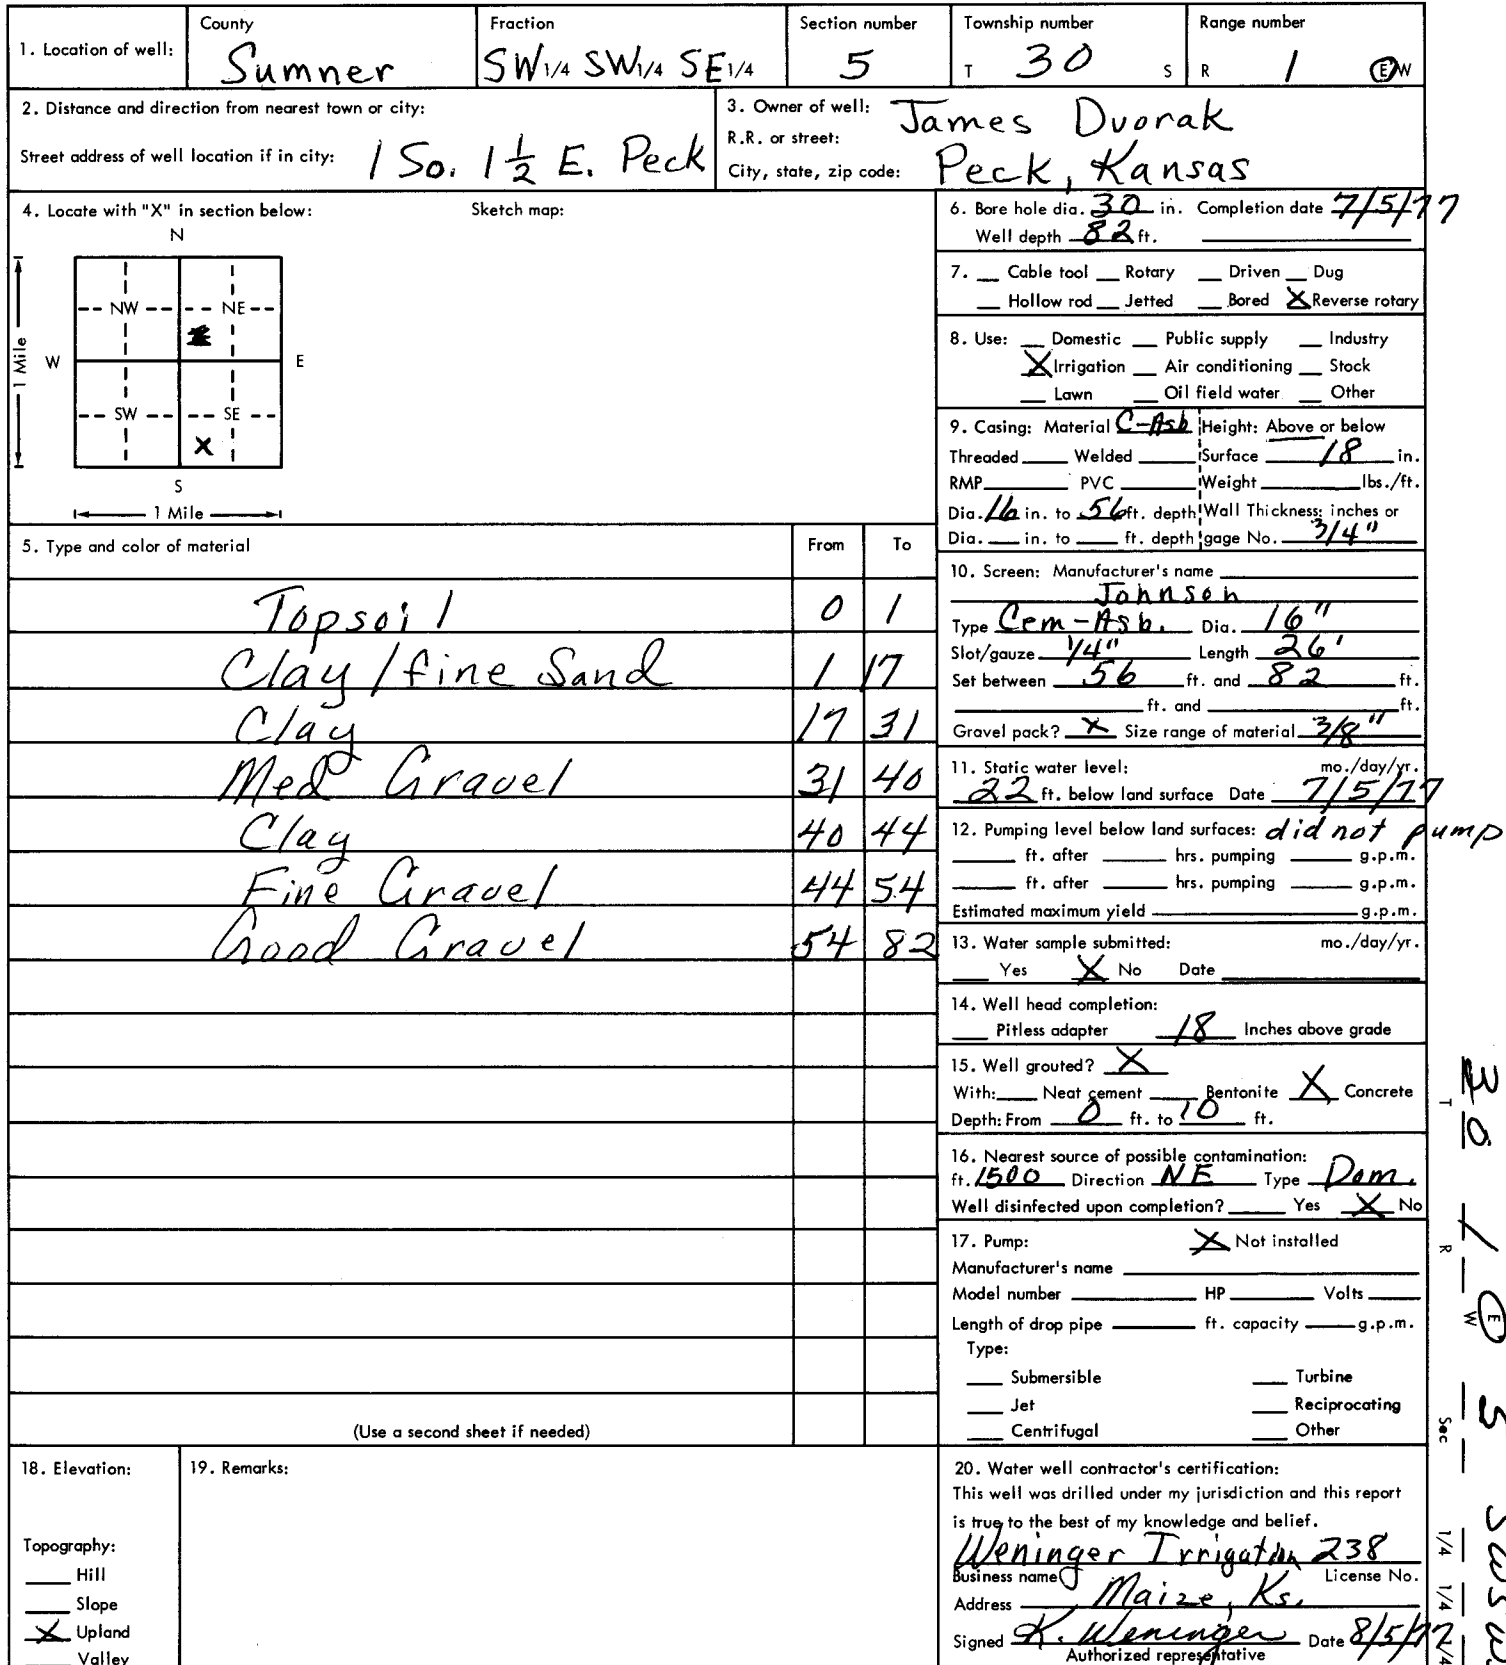 1. Location of well:
County
Sumner
Fraction
SW 1/4 SW 1/4 SE 1/4
Section number
5
Township number
T 30 S
Range number
R 1 E/W
2. Distance and direction from nearest town or city:
Street address of well location if in city: 1 So. 1 1/2 E. Peck
3. Owner of well: James Dvorak
R.R. or street:
City, state, zip code: Peck, Kansas
4. Locate with "X" in section below: Sketch map:
N
NW NE
W E
1 Mile
SW SE
X
S
1 Mile
5. Type and color of material From To
Topsoil 0 1
Clay/fine Sand 1 17
Clay 17 31
Med Gravel 31 40
Clay 40 44
Fine Gravel 44 54
Good Gravel 54 82
(Use a second sheet if needed)
6. Bore hole dia. 30 in. Completion date 7/5/77
Well depth 82 ft.
7. __ Cable tool __ Rotary __ Driven __ Dug
__ Hollow rod __ Jetted __ Bored X Reverse rotary
8. Use: __ Domestic __ Public supply __ Industry
X Irrigation __ Air conditioning __ Stock
__ Lawn __ Oil field water __ Other
9. Casing: Material C-Asb Height: Above or below
Threaded ____ Welded ____ Surface 18 in.
RMP ____ PVC ____ Weight ____ lbs./ft.
Dia. 16 in. to 56 ft. depth Wall Thickness: inches or
Dia. __ in. to __ ft. depth gage No. 3/4"
10. Screen: Manufacturer's name
Johnson
Type Cem-Asb. Dia. 16"
Slot/gauze 1/4" Length 26'
Set between 56 ft. and 82 ft.
____ ft. and ____ ft.
Gravel pack? X Size range of material 3/8"
11. Static water level: mo./day/yr.
22 ft. below land surface Date 7/5/77
12. Pumping level below land surfaces: did not pump
____ ft. after ____ hrs. pumping ____ g.p.m.
____ ft. after ____ hrs. pumping ____ g.p.m.
Estimated maximum yield ____ g.p.m.
13. Water sample submitted: mo./day/yr.
__ Yes X No Date ____
14. Well head completion:
__ Pitless adapter 18 Inches above grade
15. Well grouted? X
With: __ Neat cement __ Bentonite X Concrete
Depth: From 0 ft. to 10 ft.
16. Nearest source of possible contamination:
ft. 1500 Direction NE Type Dom.
Well disinfected upon completion? ____ Yes X No
17. Pump: X Not installed
Manufacturer's name ____
Model number ____ HP ____ Volts ____
Length of drop pipe ____ ft. capacity ____ g.p.m.
Type:
__ Submersible __ Turbine
__ Jet __ Reciprocating
__ Centrifugal __ Other
18. Elevation:
Topography:
__ Hill
__ Slope
X Upland
__ Valley
19. Remarks:
20. Water well contractor's certification:
This well was drilled under my jurisdiction and this report
is true to the best of my knowledge and belief.
Weninger Irrigation 238
Business name License No.
Address Maize, Ks.
Signed K. Weninger Date 8/5/77
Authorized representative
T 30 R 1 E W Sec 5 1/4 1/4 1/4 SW SW